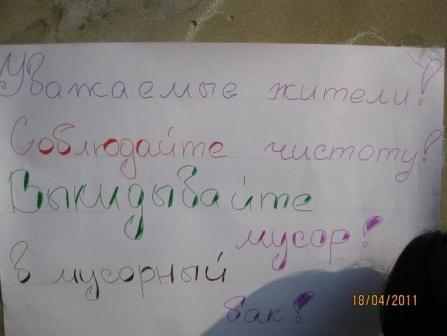 Уважаемые жители!
Соблюдайте чистоту!
Выкидывайте
мусор!
в мусорный
бак!
18/04/2011